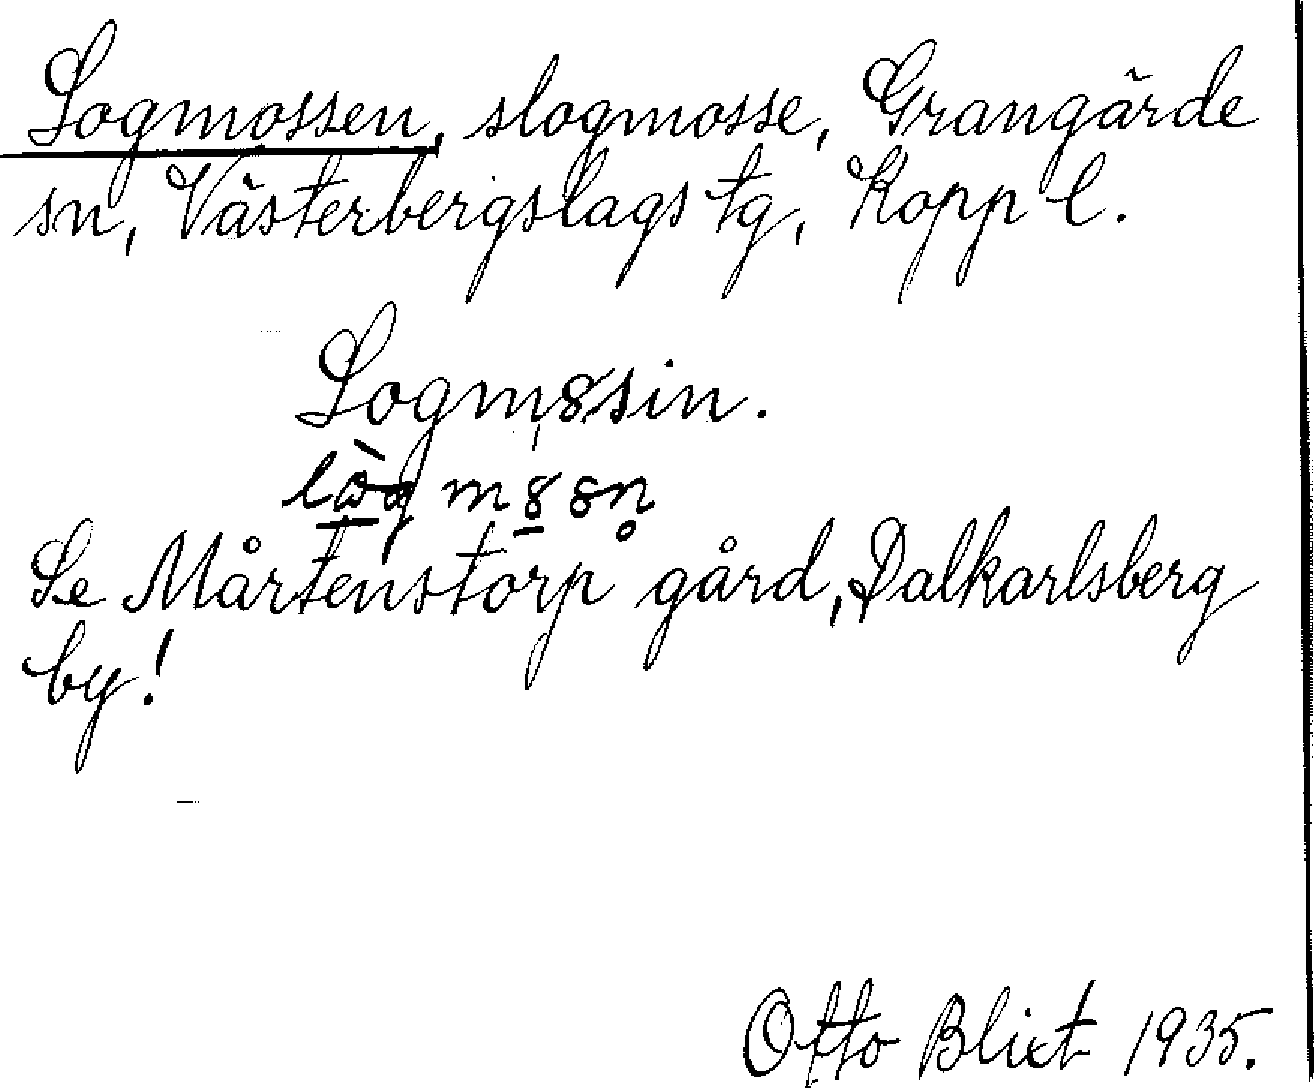 Logmossen, slogmosse, Grangärde
sn, Västerbergslags tg, Kopp l.
Logm8sin.
Se Mårtenstorp gård, Dalkarlsberg
by!
Otto Blixt 1935.